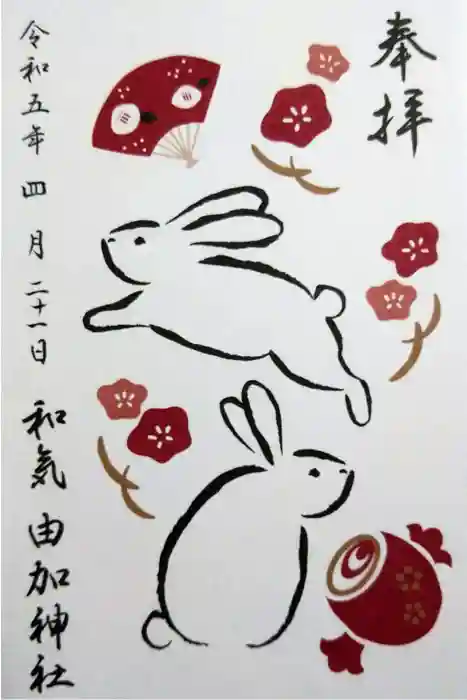 奉拝
令和五年四月二十一日
和気由加神社